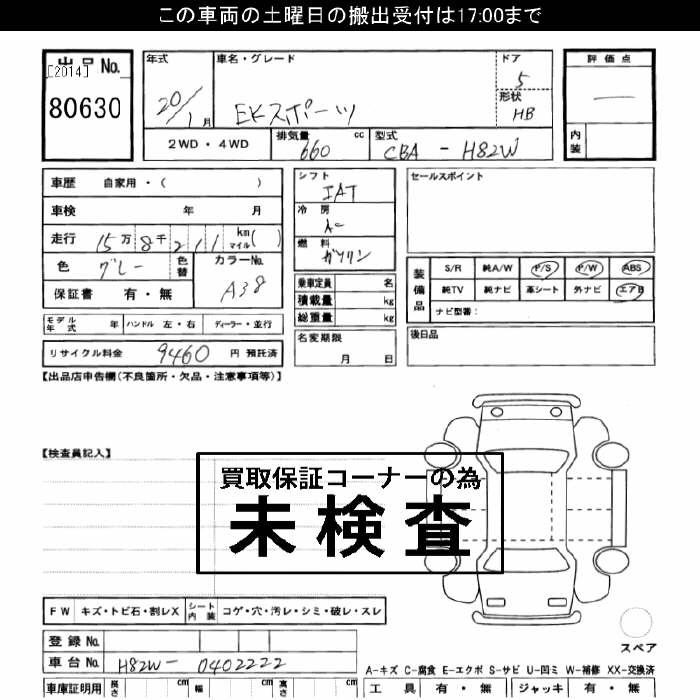 この車両の土曜日の搬出受付は17:00まで
出品No.
[2014]
80630
年式
20/1月
車名・グレード
EKスポーツ
ドア
5
形状
HB
評価点
—
内装
2WD・4WD
排気量
660 cc
型式
CBA - H82W
車歴 自家用・( )
車検 年 月
走行 15万8千211 km マイル( )
色 グレー 色替
カラーNo.
A38
保証書 有・無
モデル年式 年 ハンドル 左・右 ディーラー・並行
リサイクル料金 9460 円 預託済
シフト
IAT
冷房
燃料
ガソリン
乗車定員 名
積載量 kg
総重量 kg
名変期限
月 日
セールスポイント
装備品
S/R 純A/W P/S P/W ABS
純TV 純ナビ 革シート 外ナビ エアB
ナビ型番:
後日品
【出品店申告欄(不良箇所・欠品・注意事項等)】
【検査員記入】
買取保証コーナーの為
未検査
FW キズ・トビ石・割レX シート内装 コゲ・穴・汚レ・シミ・破レ・スレ
登録No.
車台No. H82W- 0402222
車庫証明用 長さ cm 幅 cm 高さ cm
スペア
A-キズ C-腐食 E-エクボ S-サビ U-凹ミ W-補修 XX-交換済
工具 有・無 ジャッキ 有・無